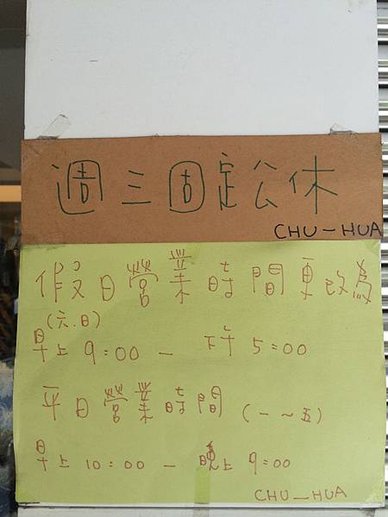 週三固定公休
CHU-HUA
假日營業時間更改為
(六.日)
早上 9:00 - 下午 5:00
平日營業時間 (一~五)
早上 10:00 - 晚上 9:00
CHU-HUA